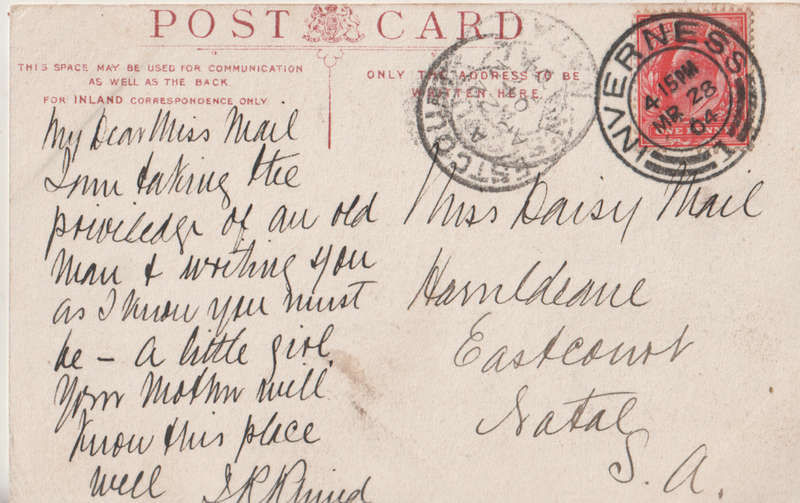 POST CARD
THIS SPACE MAY BE USED FOR COMMUNICATION
AS WELL AS THE BACK.
FOR INLAND CORRESPONDENCE ONLY
ONLY THE ADDRESS TO BE
WRITTEN HERE.
INVERNESS
4.15PM
MR 28
04
1
ONE PENNY
My Dear Miss Mail
I am taking the
priviledge of an old
man & writing you
as I know you must
be - a little girl.
Your Mother will
know this place
well
Miss Daisy Mail
Eastcourt
Natal
S. A.